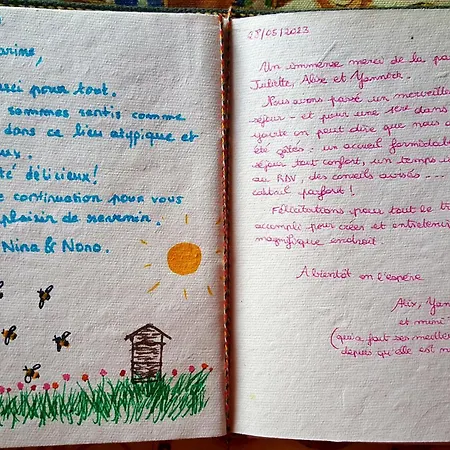 arine,
ci pour tout.
sommes sentis comme
dans ce lieu atypique et
ux.
té délicieux!
e continuation pour vous
plaisir de revenir.
Nina & Nono.
28/05/2023
Un immense merci de la pa
Juliette, Alix et Yannick.
Nous avons passé un merveille
séjour - et pour une 1ère dans
yourte on peut dire que nous a
été gâtés : un accueil formidabl
séjour tout confort, un temps i
au RDV, des conseils avisés ...
cocktail parfait !
Félicitations pour tout le tr
accompli pour créer et entretenir
magnifique endroit.
A bientôt on l'espère
Alix, Yan
et mini
(qui a fait ses meille
depuis qu'elle est n